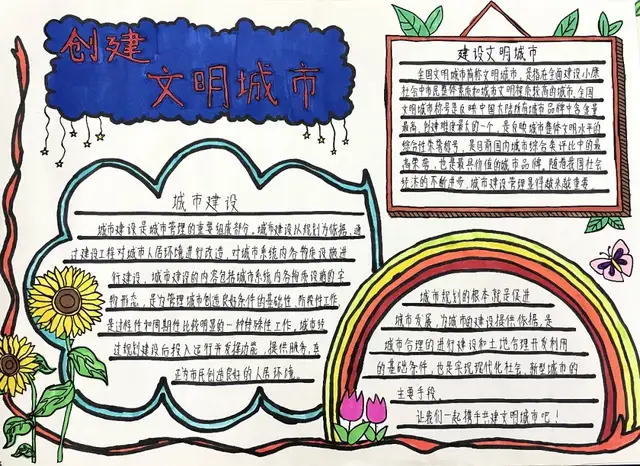 创建
文明城市
建设文明城市
全国文明城市简称文明城市，是指在全面建设小康
社会中市民整体素质和城市文明程度较高的城市。全国
文明城市称号是反映中国大陆所有城市品牌中含金量
最高、创建难度最大的一个，是反映城市整体文明水平的
综合性荣誉称号，是目前国内城市综合类评比中的最
高荣誉，也是最具价值的城市品牌。随着我国社会
经济的不断进步，城市建设管理显得越来越重要
城市建设
城市建设是城市管理的重要组成部分。城市建设以规划为依据，通
过建设工程对城市人居环境进行改造，对城市系统内各物质设施进
行建设，城市建设的内容包括城市系统内各物质设施的实
物形态，是为管理城市创造良好条件的基础性、阶段性工作，
是过程性和周期性比较明显的一种特殊性工作。城市经
过规划建设后投入运行并发挥功能，提供服务，真
正为市民创造良好的人居环境。
城市规划的根本就是促进
城市发展，为城市的建设提供依据，是
城市合理的进行建设和土地合理开发利用
的基础条件，也是实现现代化社会、新型城市的
主要手段。
让我们一起携手共建文明城市吧！